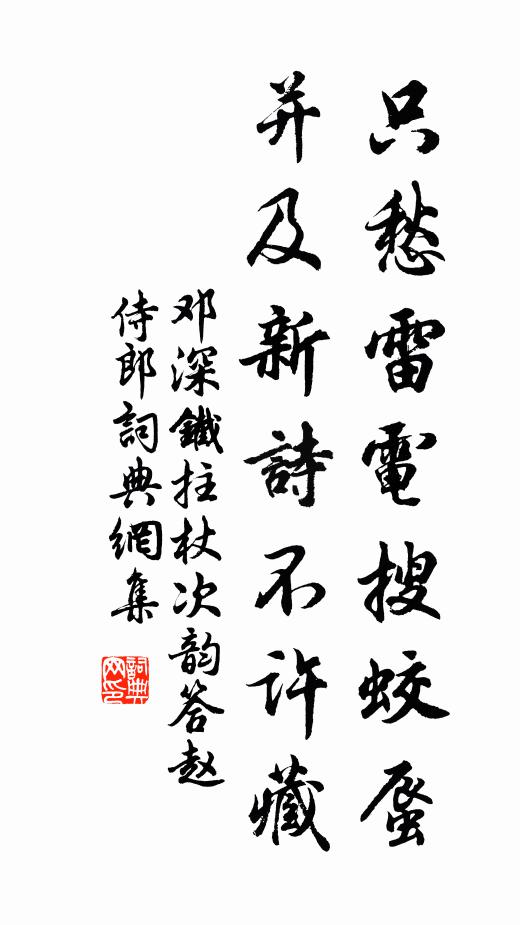 只愁雷電搜蛟蜃
并及新詩不许藏
邓深鐵拄杖次韵答赵
侍郎詞典網集
詞典网印